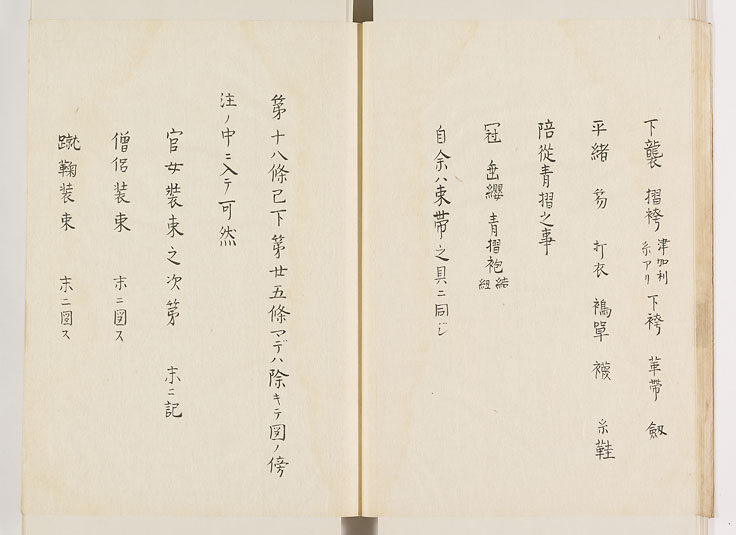 下襲 摺袴 津加利糸アリ 下袴 革帯 劔
平緒 笏 打衣 褐單 襪 糸鞋
陪従青摺之事
冠 垂纓 青摺袍 結紐
自余ハ束帯之具ニ同ジ
第十八條已下第廿五條マデハ除キテ図ノ傍
注ノ中ニ入テ可然
官女裝束之次第 末ニ記
僧侶装束 末ニ図ス
蹴鞠装束 末ニ図ス